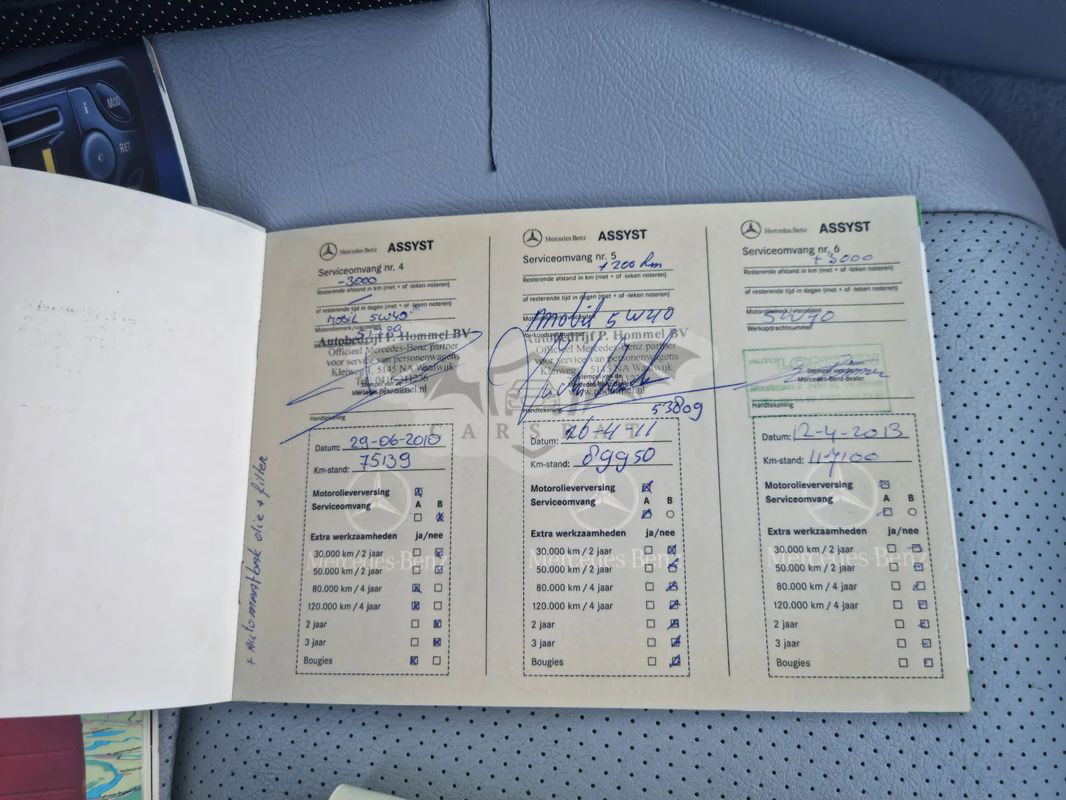 i
MOD
RET
+ Automaatbak olie + filter
Mercedes Benz ASSYST
Serviceomvang nr. 4
-3000
Resterende afstand in km (met + of -teken noteren)
of resterende tijd in dagen (met + of -teken noteren)
Mobil 5W40
Motoroliemerk/viscositeit
Autobedrijf P. Hommel BV
Officieel Mercedes-Benz partner
voor service van personenwagens
Kleiweg 1, 5145 NA Waalwijk
Stempel van de
Handtekening
Datum: 29-06-2010
Km-stand: 75139
Motorolieverversing
Serviceomvang A B
Extra werkzaamheden ja/nee
30.000 km / 2 jaar
50.000 km / 2 jaar
80.000 km / 4 jaar
120.000 km / 4 jaar
2 jaar
3 jaar
Bougies
Mercedes-Benz
Mercedes Benz ASSYST
Serviceomvang nr. 5
+200 km
Resterende afstand in km (met + of -teken noteren)
of resterende tijd in dagen (met + of -teken noteren)
Mobil 5W40
Autobedrijf P. Hommel BV
Officieel Mercedes-Benz partner
voor service van personenwagens
Kleiweg 1, 5145 NA Waalwijk
Stempel van de
Mercedes-Benz-dealer
Handtekening
53809
Datum: 26-4-11
Km-stand: 89950
Motorolieverversing
Serviceomvang A B
Extra werkzaamheden ja/nee
30.000 km / 2 jaar
50.000 km / 2 jaar
80.000 km / 4 jaar
120.000 km / 4 jaar
2 jaar
3 jaar
Bougies
Mercedes-Benz
Mercedes Benz ASSYST
Serviceomvang nr. 6
+3000
Resterende afstand in km (met + of -teken noteren)
of resterende tijd in dagen (met + of -teken noteren)
Motoroliemerk/viscositeit
5W40
Werkopdrachtnummer
Stempel van de
Mercedes-Benz-dealer
Handtekening
Datum: 12-4-2013
Km-stand: 117100
Motorolieverversing
Serviceomvang A B
Extra werkzaamheden ja/nee
30.000 km / 2 jaar
50.000 km / 2 jaar
80.000 km / 4 jaar
120.000 km / 4 jaar
2 jaar
3 jaar
Bougies
Mercedes-Benz